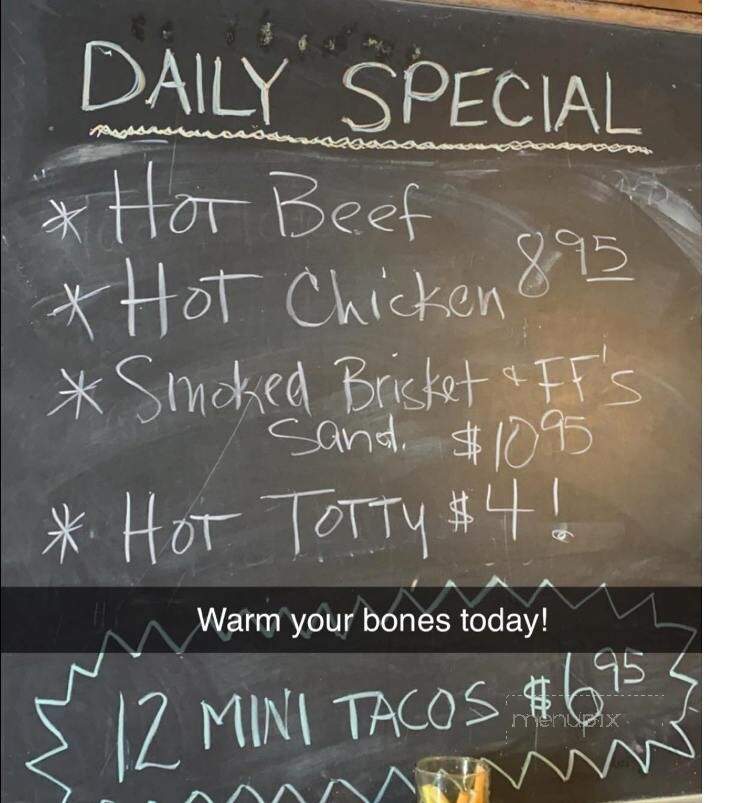 DAILY SPECIAL
* Hot Beef
8 95
* Hot Chicken
* Smoked Brisket & FF's
Sand. $10 95
* Hot Totty $4!
Warm your bones today!
12 MINI TACOS $6 95
menupix